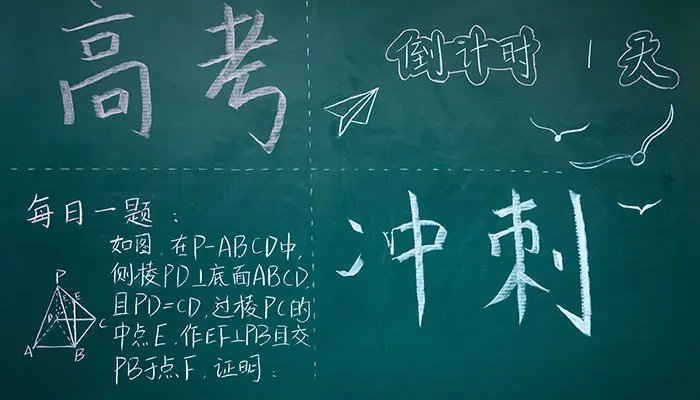 高考
倒计时 1 天
冲刺
每日一题：
如图，在P-ABCD中，
侧棱PD⊥底面ABCD，
且PD=CD，过棱PC的
中点E，作EF⊥PB且交
PB于点F，证明：
P
E
C
A
B